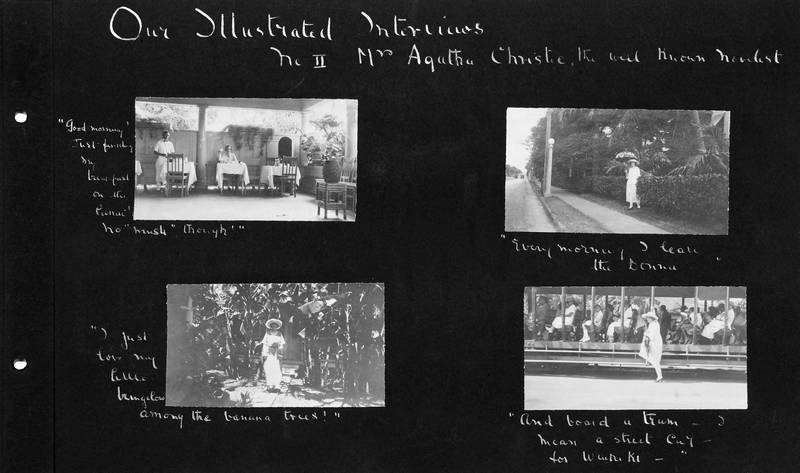 Our Illustrated Interviews
No II Mrs Agatha Christie, the well known novelist
"Good morning!
Just finishing
my
breakfast
on the
Lanai
no "mush" though!"
"Every morning I leave
the Donna"
"I just
love my
little
bungalow
among the banana trees!"
"And board a tram – I
mean a street car –
for Waikiki – "